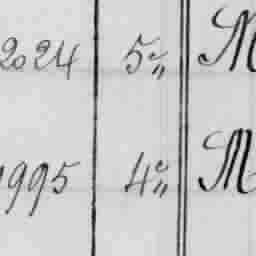 2024 5e„ M
1995 4e„ M